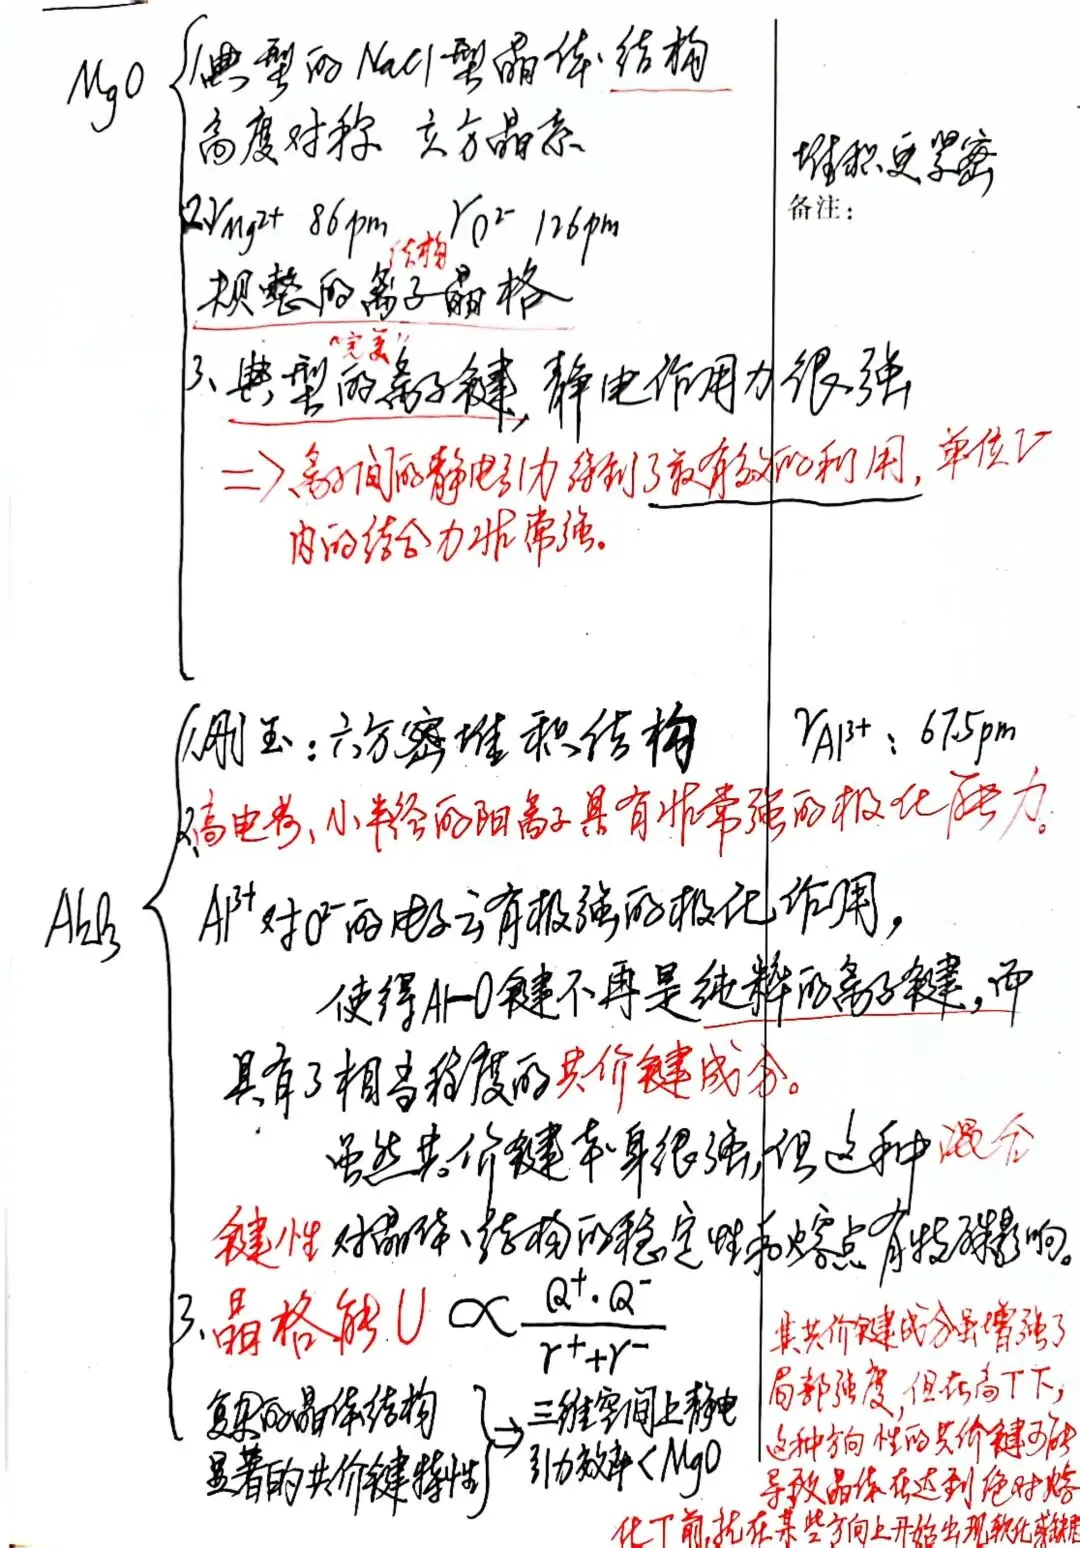 MgO
1.典型的NaCl型晶体结构
高度对称 立方晶系
堆积更紧密
备注:
2.rMg2+ 86pm rO2- 126pm
结构
规整的离子晶格
"完美"
3、典型的离子键,静电作用力很强
=>离子间的静电引力得到了最有效的利用,单位V
内的结合力非常强。
Al2O3
1.刚玉:六方密堆积结构
rAl3+:67.5pm
2.高电荷、小半径的阳离子具有非常强的极化能力。
Al3+对O2-的电子云有极强的极化作用,
使得Al-O键不再是纯粹的离子键,而
具有了相当程度的共价键成分。
虽然共价键本身很强,但这种混合
键性对晶体、结构的稳定性和熔点有特殊影响。
3、晶格能U ∝ Q+·Q- / r++r-
复杂的晶体结构
显著的共价键特性
=> 三维空间上静电
引力效率<MgO
其共价键成分虽增强了
局部强度,但在高T下,
这种方向性的共价键可能
导致晶体在达到绝对熔
化T前,就在某些方向上开始出现软化或缺陷